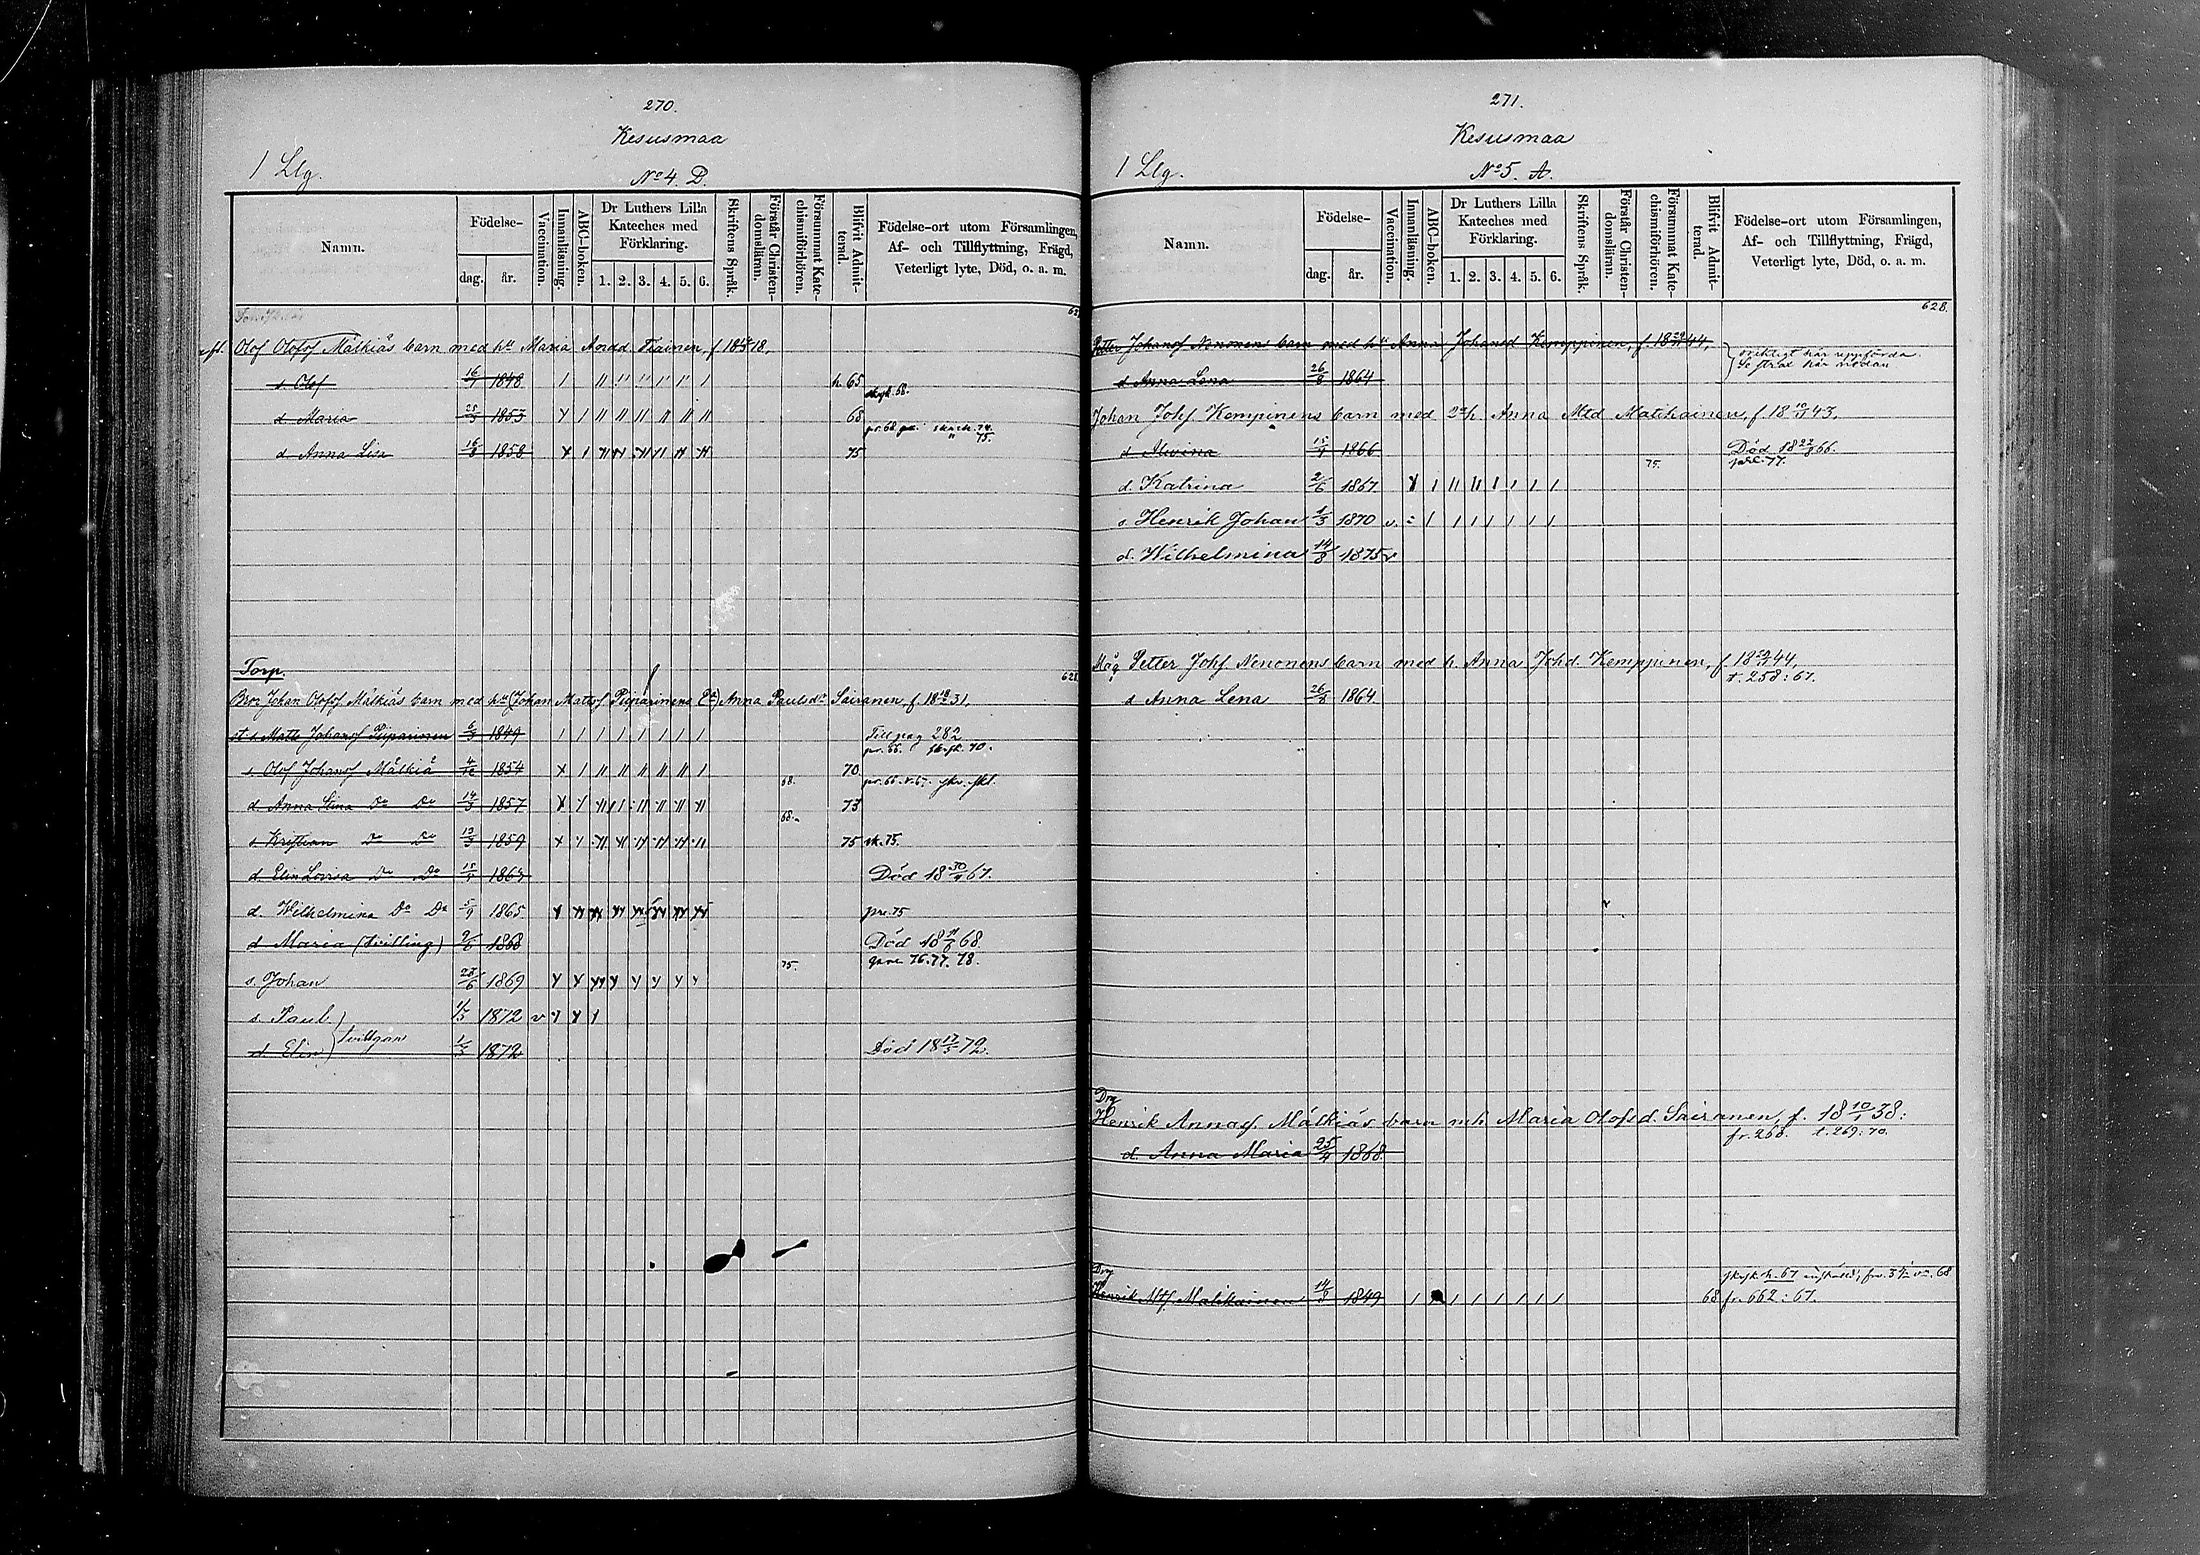 270.
Kesusmaa
1 Llg.
No 4. D.
Namn.
Födelse-
dag. år.
Vaccination.
Innanläsning.
ABC-boken.
Dr Luthers Lilla Kateches med Förklaring.
1. 2. 3. 4. 5. 6.
Skriftens Språk.
Förstår Christendomsläran.
Försummat Katechismiförhören.
Blifvit Admitterad.
Födelse-ort utom Församlingen, Af- och Tillflyttning, Frägd, Veterligt lyte, Död, o. a. m.
Olof Olofsf Mälkiäs barn med hu Maria Andsd Tiainen, f. 18 18,
s Olof 16/7 1848 h 65
d Maria 25/3 1853 68
d Anna Lisa 16/8 1858 75
Torp.
Bro Johan Olofsf. Mälkiäs barn med hu (Johan Matsf. Piiparinens Ea) Anna Paulsdr Sairanen, f. 18 31,
s Matts Johansf Piiparinen 6/3 1849 Till pag 282
s Olof Johansf Mälkiä 4/12 1854 70
d Anna Stina Do Do 14/3 1857 68. 73
s Kristian Do Do 13/3 1859 68. 75 sk. 75.
d. Elin Lovisa Do Do 1863 Död 18 30/4 67.
d. Wilhelmina Do Do 5/9 1865 pre. 75
d Maria (tvilling) 2/6 1868 Död 18 11/6 68.
s. Johan 28/6 1869 75. 76. 77. 78.
s. Paul 1/3 1872 v
d Elin 1/3 1872 Död 18 13/5 72.
271.
Kesusmaa
1 Llg.
No 5. A.
Namn.
Födelse-
dag. år.
Vaccination.
Innanläsning.
ABC-boken.
Dr Luthers Lilla Kateches med Förklaring.
1. 2. 3. 4. 5. 6.
Skriftens Språk.
Förstår Christendomsläran.
Försummat Katechismiförhören.
Blifvit Admitterad.
Födelse-ort utom Församlingen, Af- och Tillflyttning, Frägd, Veterligt lyte, Död, o. a. m.
628.
Petter Johansf Nenonens barn med hu Anna Johansd Kemppinen, f. 18 44,
oriktigt här uppförda.
Se strax här nedan
d Anna Lena 26/8 1864
Johan Johf Kempinens barn med 2a h. Anna Mtd Matikainen, f 18 43.
d 1866 Död 18 22/8 66.
d. Katrina 2/6 1867 75. 77.
s Henrik Johan 1/3 1870 v.
d. Wilhelmina 14/8 1875 v
Måg Petter Johf Nenonens barn med h. Anna Johd. Kemppinen, f 18 44,
t. 258: 67.
d Anna Lena 26/8 1864.
Drg
Henrik Annasf. Mälkiäs barn mh Maria Olofsd. Sairanen, f. 18 10/1 38:
fr. 268. t. 269: 70.
d. Anna Maria 25/4 1868.
Drg
Henrik Mtf. Matikainen 14/8 1849 68 fr. 662: 67.